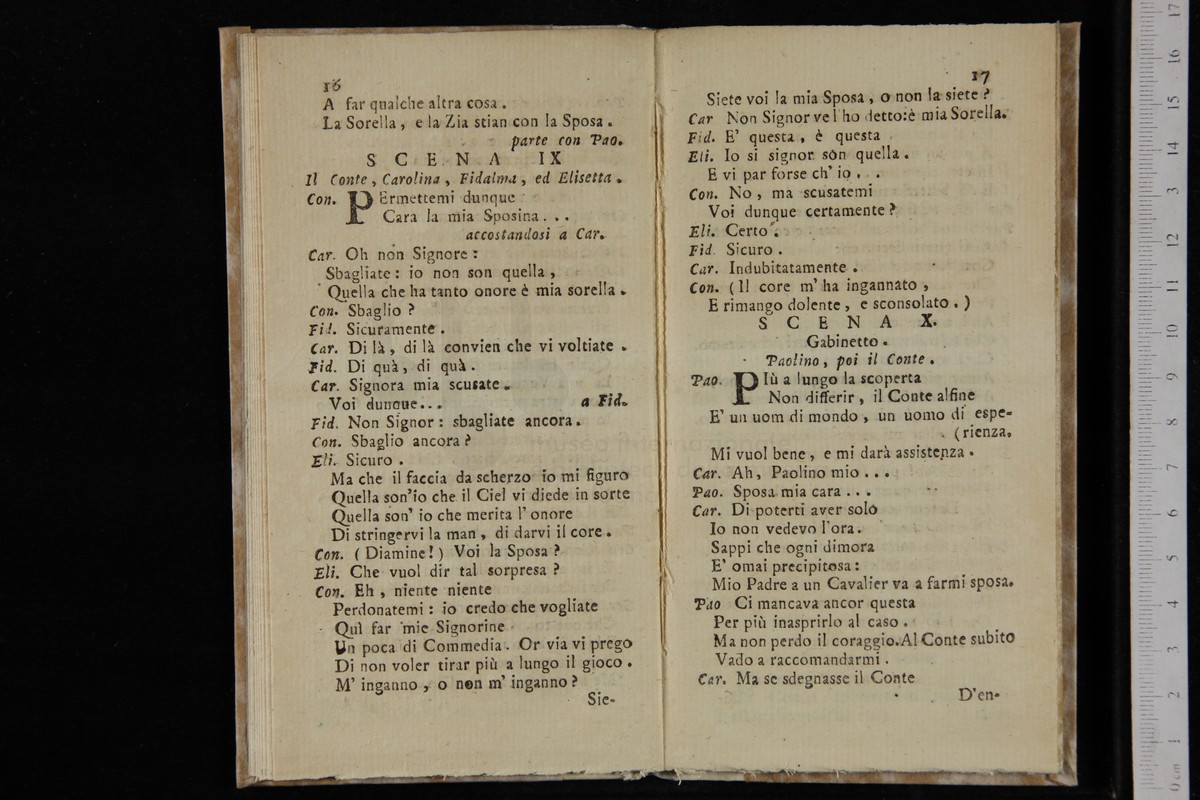 16
A far qualche altra cosa.
La Sorella, e la Zia stian con la Sposa.
parte con Pao.
SCENA IX
Il Conte, Carolina, Fidalma, ed Elisetta.
Con. PErmettemi dunque
Cara la mia Sposina...
accostandosi a Car.
Car. Oh non Signore:
Sbagliate: io non son quella,
Quella che ha tanto onore è mia sorella.
Con. Sbaglio?
Fid. Sicuramente.
Car. Di là, di là convien che vi voltiate.
Fid. Di quà, di quà.
Car. Signora mia scusate.
Voi dunque... a Fid.
Fid. Non Signor: sbagliate ancora.
Con. Sbaglio ancora?
Eli. Sicuro.
Ma che il faccia da scherzo io mi figuro
Quella son'io che il Ciel vi diede in sorte
Quella son' io che merita l' onore
Di stringervi la man, di darvi il core.
Con. (Diamine!) Voi la Sposa?
Eli. Che vuol dir tal sorpresa?
Con. Eh, niente niente
Perdonatemi: io credo che vogliate
Quì far mie Signorine
Un poca di Commedia. Or via vi prego
Di non voler tirar più a lungo il gioco.
M' inganno, o non m' inganno?
Sie-
17
Siete voi la mia Sposa, o non la siete?
Car Non Signor ve l' ho detto: è mia Sorella.
Fid. E' questa, è questa
Eli. Io si signor son quella.
E vi par forse ch' io...
Con. No, ma scusatemi
Voi dunque certamente?
Eli. Certo.
Fid. Sicuro.
Car. Indubitatamente.
Con. (Il core m' ha ingannato,
E rimango dolente, e sconsolato.)
SCENA X.
Gabinetto.
Paolino, poi il Conte.
Pao. PIù a lungo la scoperta
Non differir, il Conte alfine
E' un uom di mondo, un uomo di espe-
(rienza.
Mi vuol bene, e mi darà assistenza.
Car. Ah, Paolino mio...
Pao. Sposa mia cara...
Car. Di poterti aver solo
Io non vedevo l'ora.
Sappi che ogni dimora
E' omai precipitosa:
Mio Padre a un Cavalier va a farmi sposa.
Pao Ci mancava ancor questa
Per più inasprirlo al caso.
Ma non perdo il coraggio. Al Conte subito
Vado a raccomandarmi.
Car. Ma se sdegnasse il Conte
D'en-